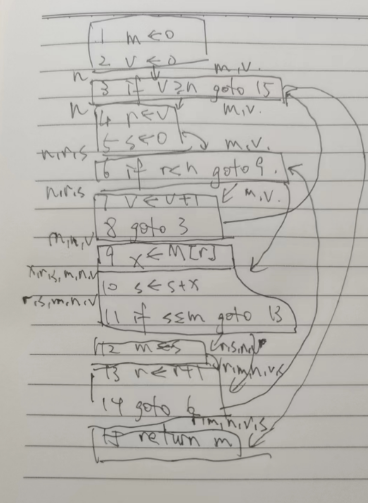 1 m ← 0
2 v ← 0
n m,v.
3 if v ≥ n goto 15
n m,v.
4 r ← v
5 s ← 0
n,r,s m,v.
6 if r < n goto 9.
n,r,s m,v.
7 v ← v+1
8 goto 3
m,n,v
9 x ← M[r]
x,r,s,m,n,v
10 s ← s+x
r,s,m,n,v
11 if s ≤ m goto 13
12 m ← s
r,m,n,v,s
13 r ← r+1
14 goto 6
r,m,n,v,s
15 return m